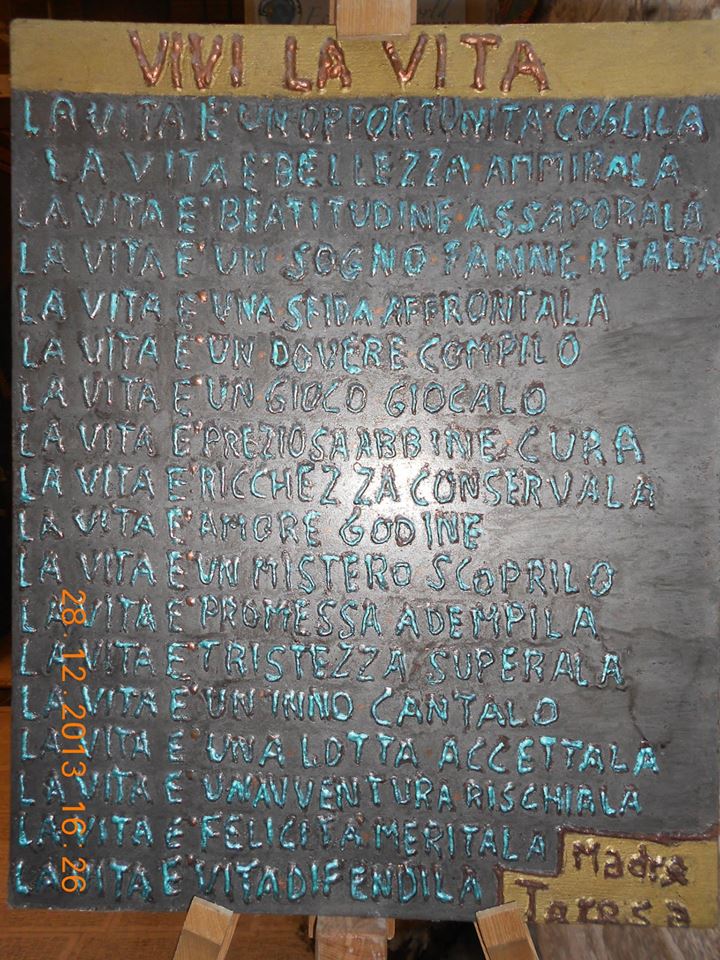 VIVI LA VITA
LA VITA E' UN OPPORTUNITA' COGLILA
LA VITA E' BELLEZZA AMMIRALA
LA VITA E' BEATITUDINE ASSAPORALA
LA VITA E' UN SOGNO FANNE REALTA
LA VITA E' UNA SFIDA AFFRONTALA
LA VITA E' UN DOVERE COMPILO
LA VITA E' UN GIOCO GIOCALO
LA VITA E' PREZIOSA ABBINE CURA
LA VITA E' RICCHEZZA CONSERVALA
LA VITA E' AMORE GODINE
LA VITA E' UN MISTERO SCOPRILO
LA VITA E' PROMESSA ADEMPILA
LA VITA E TRISTEZZA SUPERALA
LA VITA E' UN INNO CANTALO
LA VITA E' UNA LOTTA ACCETTALA
LA VITA E' UNAVVENTURA RISCHIALA
LA VITA E' FELICITA MERITALA
LA VITA E' VITA DIFENDILA
Madre
Teresa
28.12.2013 16:26